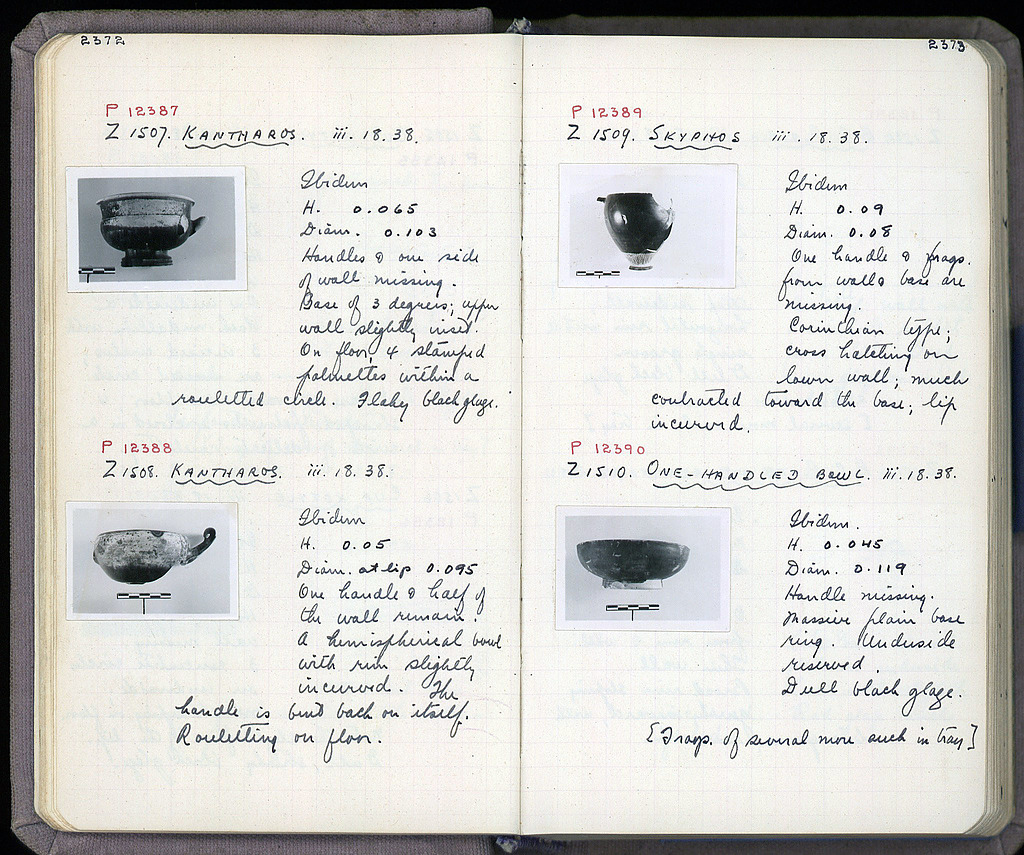 2372
P 12387
Z 1507. KANTHAROS. iii. 18. 38.
Ibidem
H. 0.065
Diam. 0.103
Handles & one side
of wall missing.
Base of 3 degrees; upper
wall slightly inset.
On floor, 4 stamped
palmettes within a
rouletted circle. Flaky black glaze.
P 12388
Z 1508. KANTHAROS. iii. 18. 38.
Ibidem
H. 0.05
Diam. at lip 0.095
One handle & half of
the wall remain.
A hemispherical bowl
with rim slightly
incurved. The
handle is bent back on itself.
Rouletting on floor.
2373
P 12389
Z 1509. SKYPHOS iii. 18. 38.
Ibidem
H. 0.09
Diam. 0.08
One handle & frags.
from wall & base are
missing.
Corinthian type;
cross hatching on
lower wall; much
contracted toward the base; lip
incurved.
P 12390
Z 1510. ONE-HANDLED BOWL. iii. 18. 38.
Ibidem.
H. 0.045
Diam. 0.119
Handle missing.
Massive plain base
ring. Underside
reserved.
Dull black glaze.
[Frags. of several more such in tray]